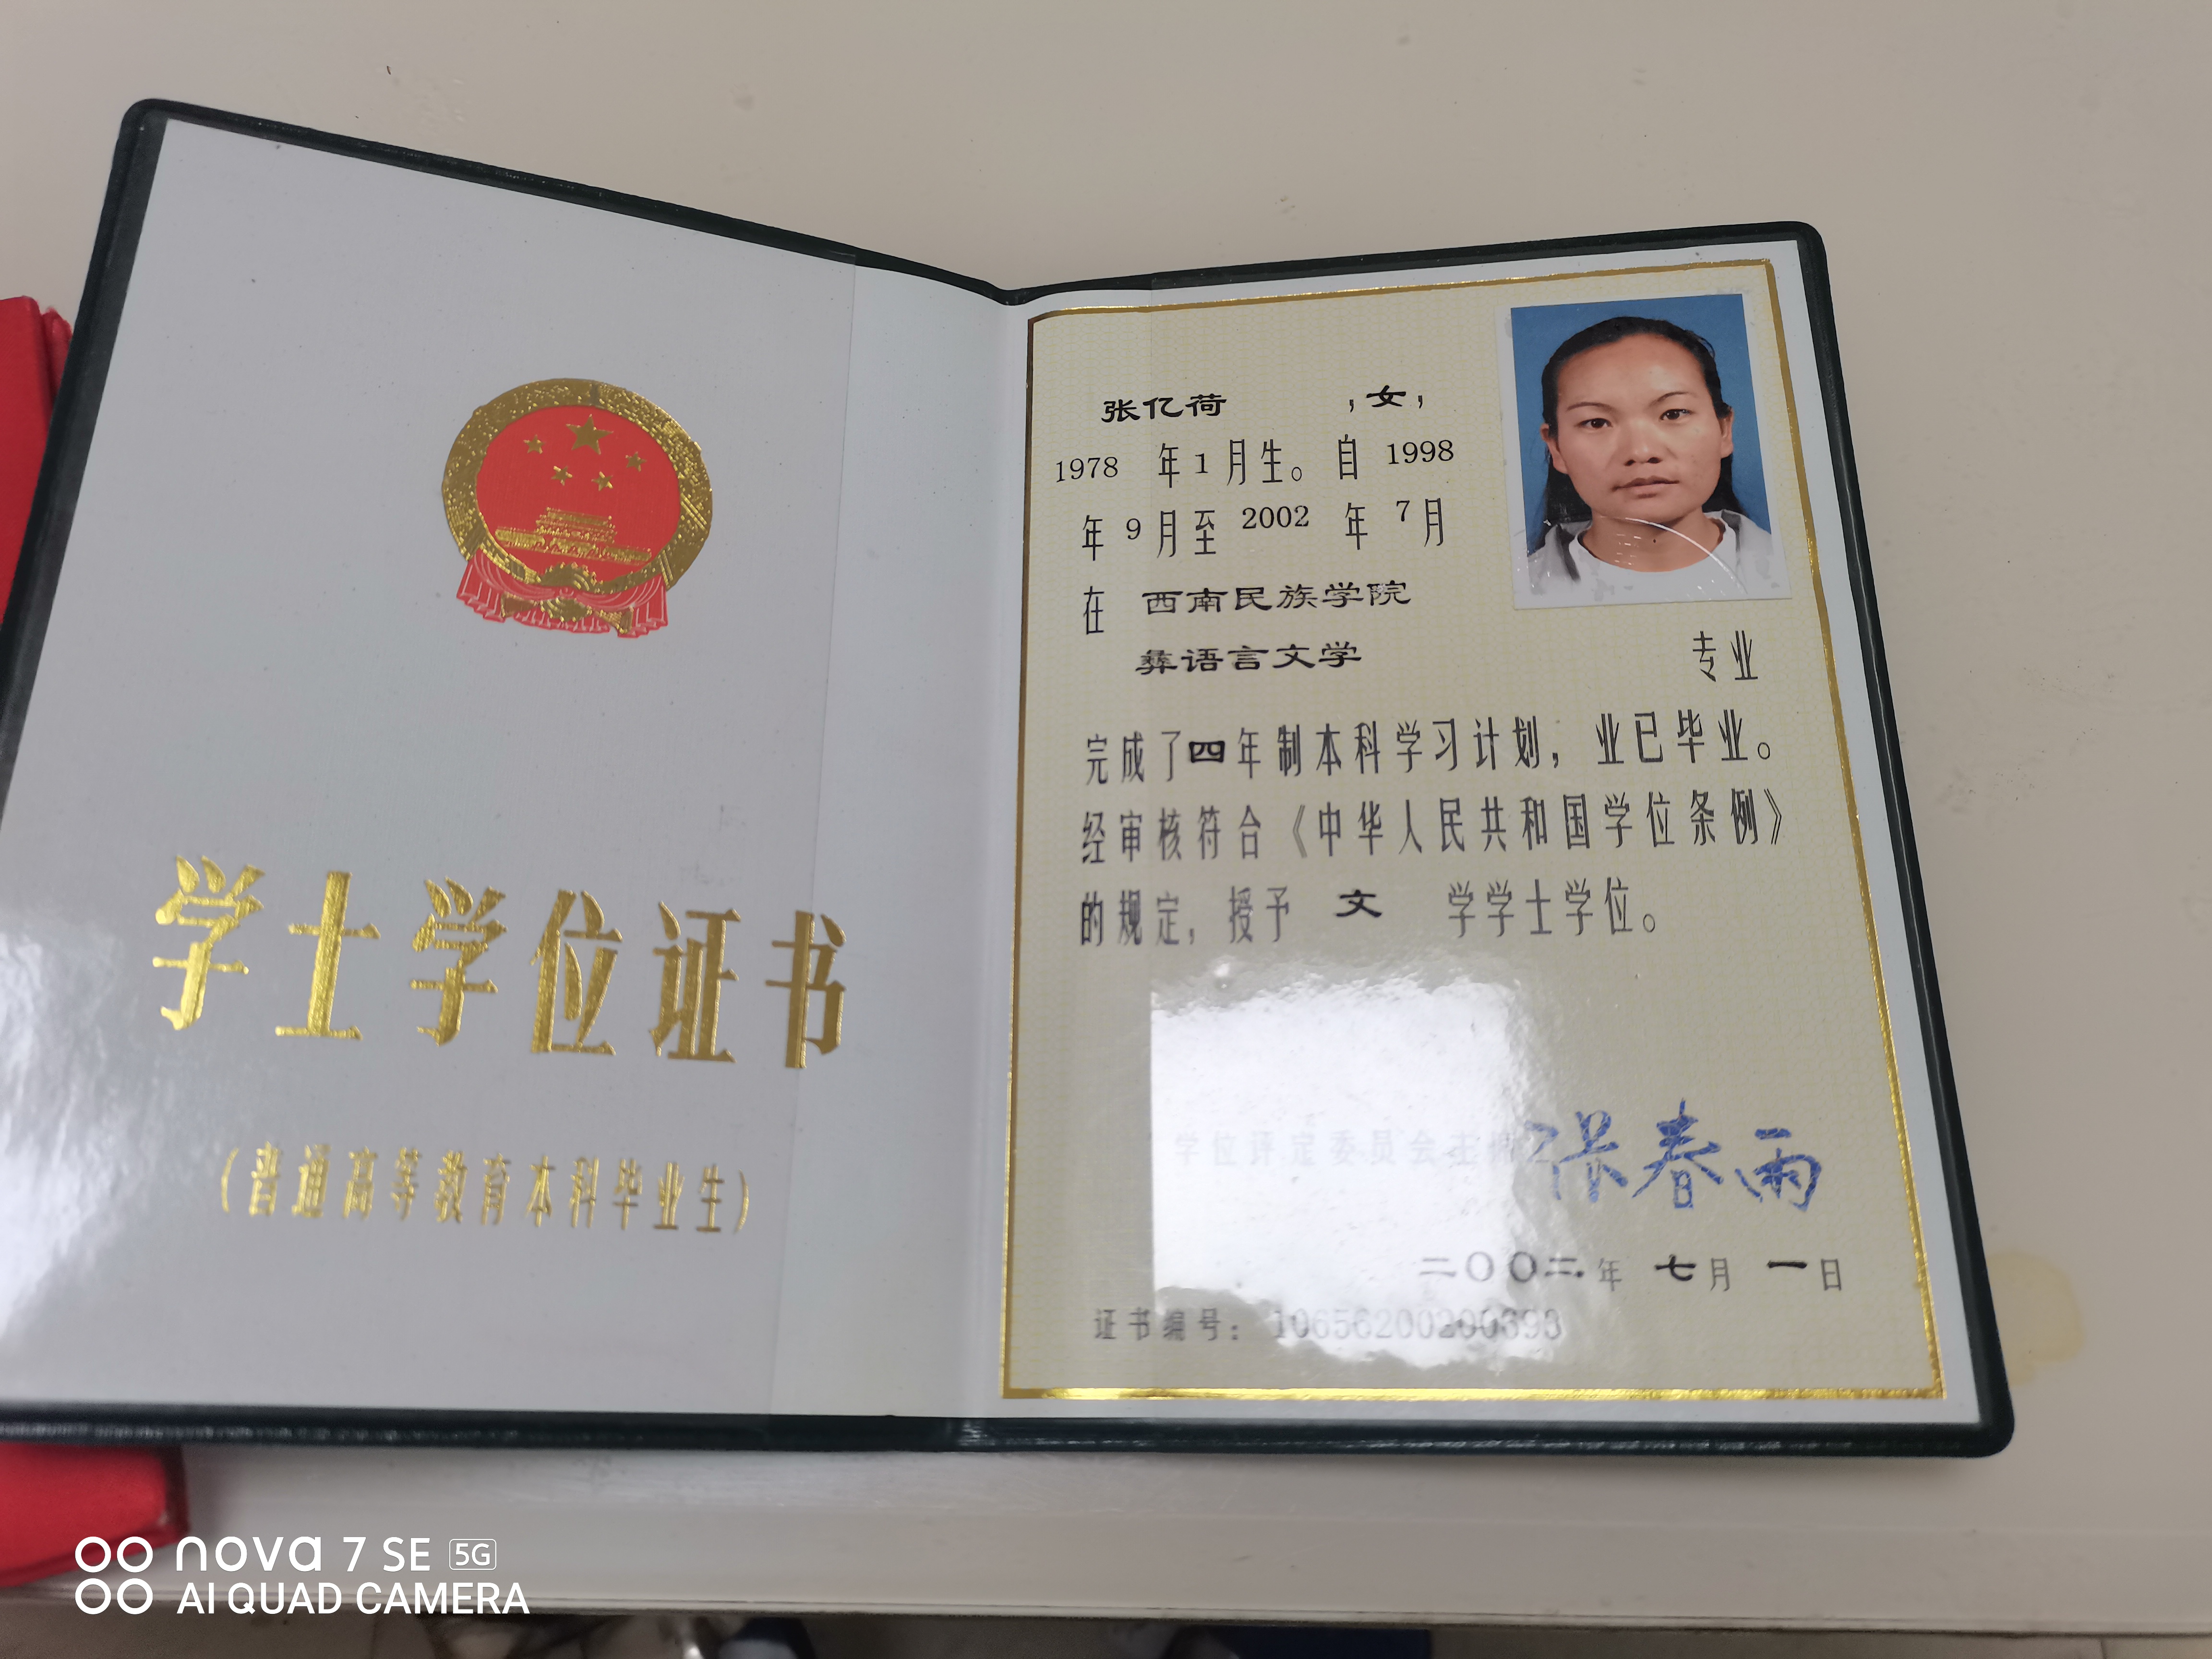 学士学位证书
(普通高等教育本科毕业生)
张亿荷 ,女,
1978 年1月生。自 1998
年9月至 2002 年 7月
在 西南民族学院
彝语言文学 专业
完成了四年制本科学习计划，业已毕业。
经审核符合《中华人民共和国学位条例》
的规定，授予 文 学学士学位。
学位评定委员会主席 张春雨
二〇〇二年 七月 一日
证书编号：1065620020​0693
nova 7 SE 5G
AI QUAD CAMERA